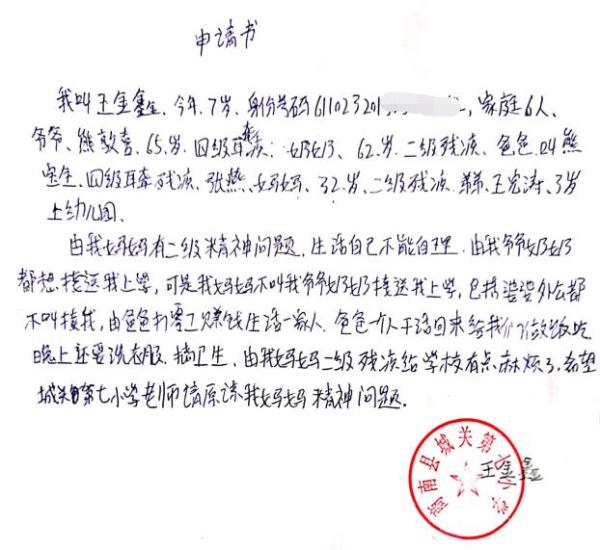 申请书
我叫王金鑫、今年7岁、身份号码611023201 家庭6人、
爷爷、熊敦喜、65岁、四级残疾、奶奶、62岁、二级残疾、爸爸、24熊
宝金、四级耳聋残疾、张燕、妈妈、32岁、二级残疾、弟弟、王宏涛、3岁
上幼儿园、
由我妈妈有二级精神问题、生活自己不能自理、由我爷爷奶奶
都想接送我上学，可是我妈妈不叫我爷爷奶奶接送我上学，包括婆婆外公都
不叫接我，由爸爸打零工赚钱生活一家人、爸爸一个人干活回来给我们做饭吃
晚上还要洗衣服、搞卫生、由我妈妈二级残疾给学校有点麻烦了、希望
城关第七小学老师请原谅我妈妈精神问题.
王金鑫
商南县城关第七小学